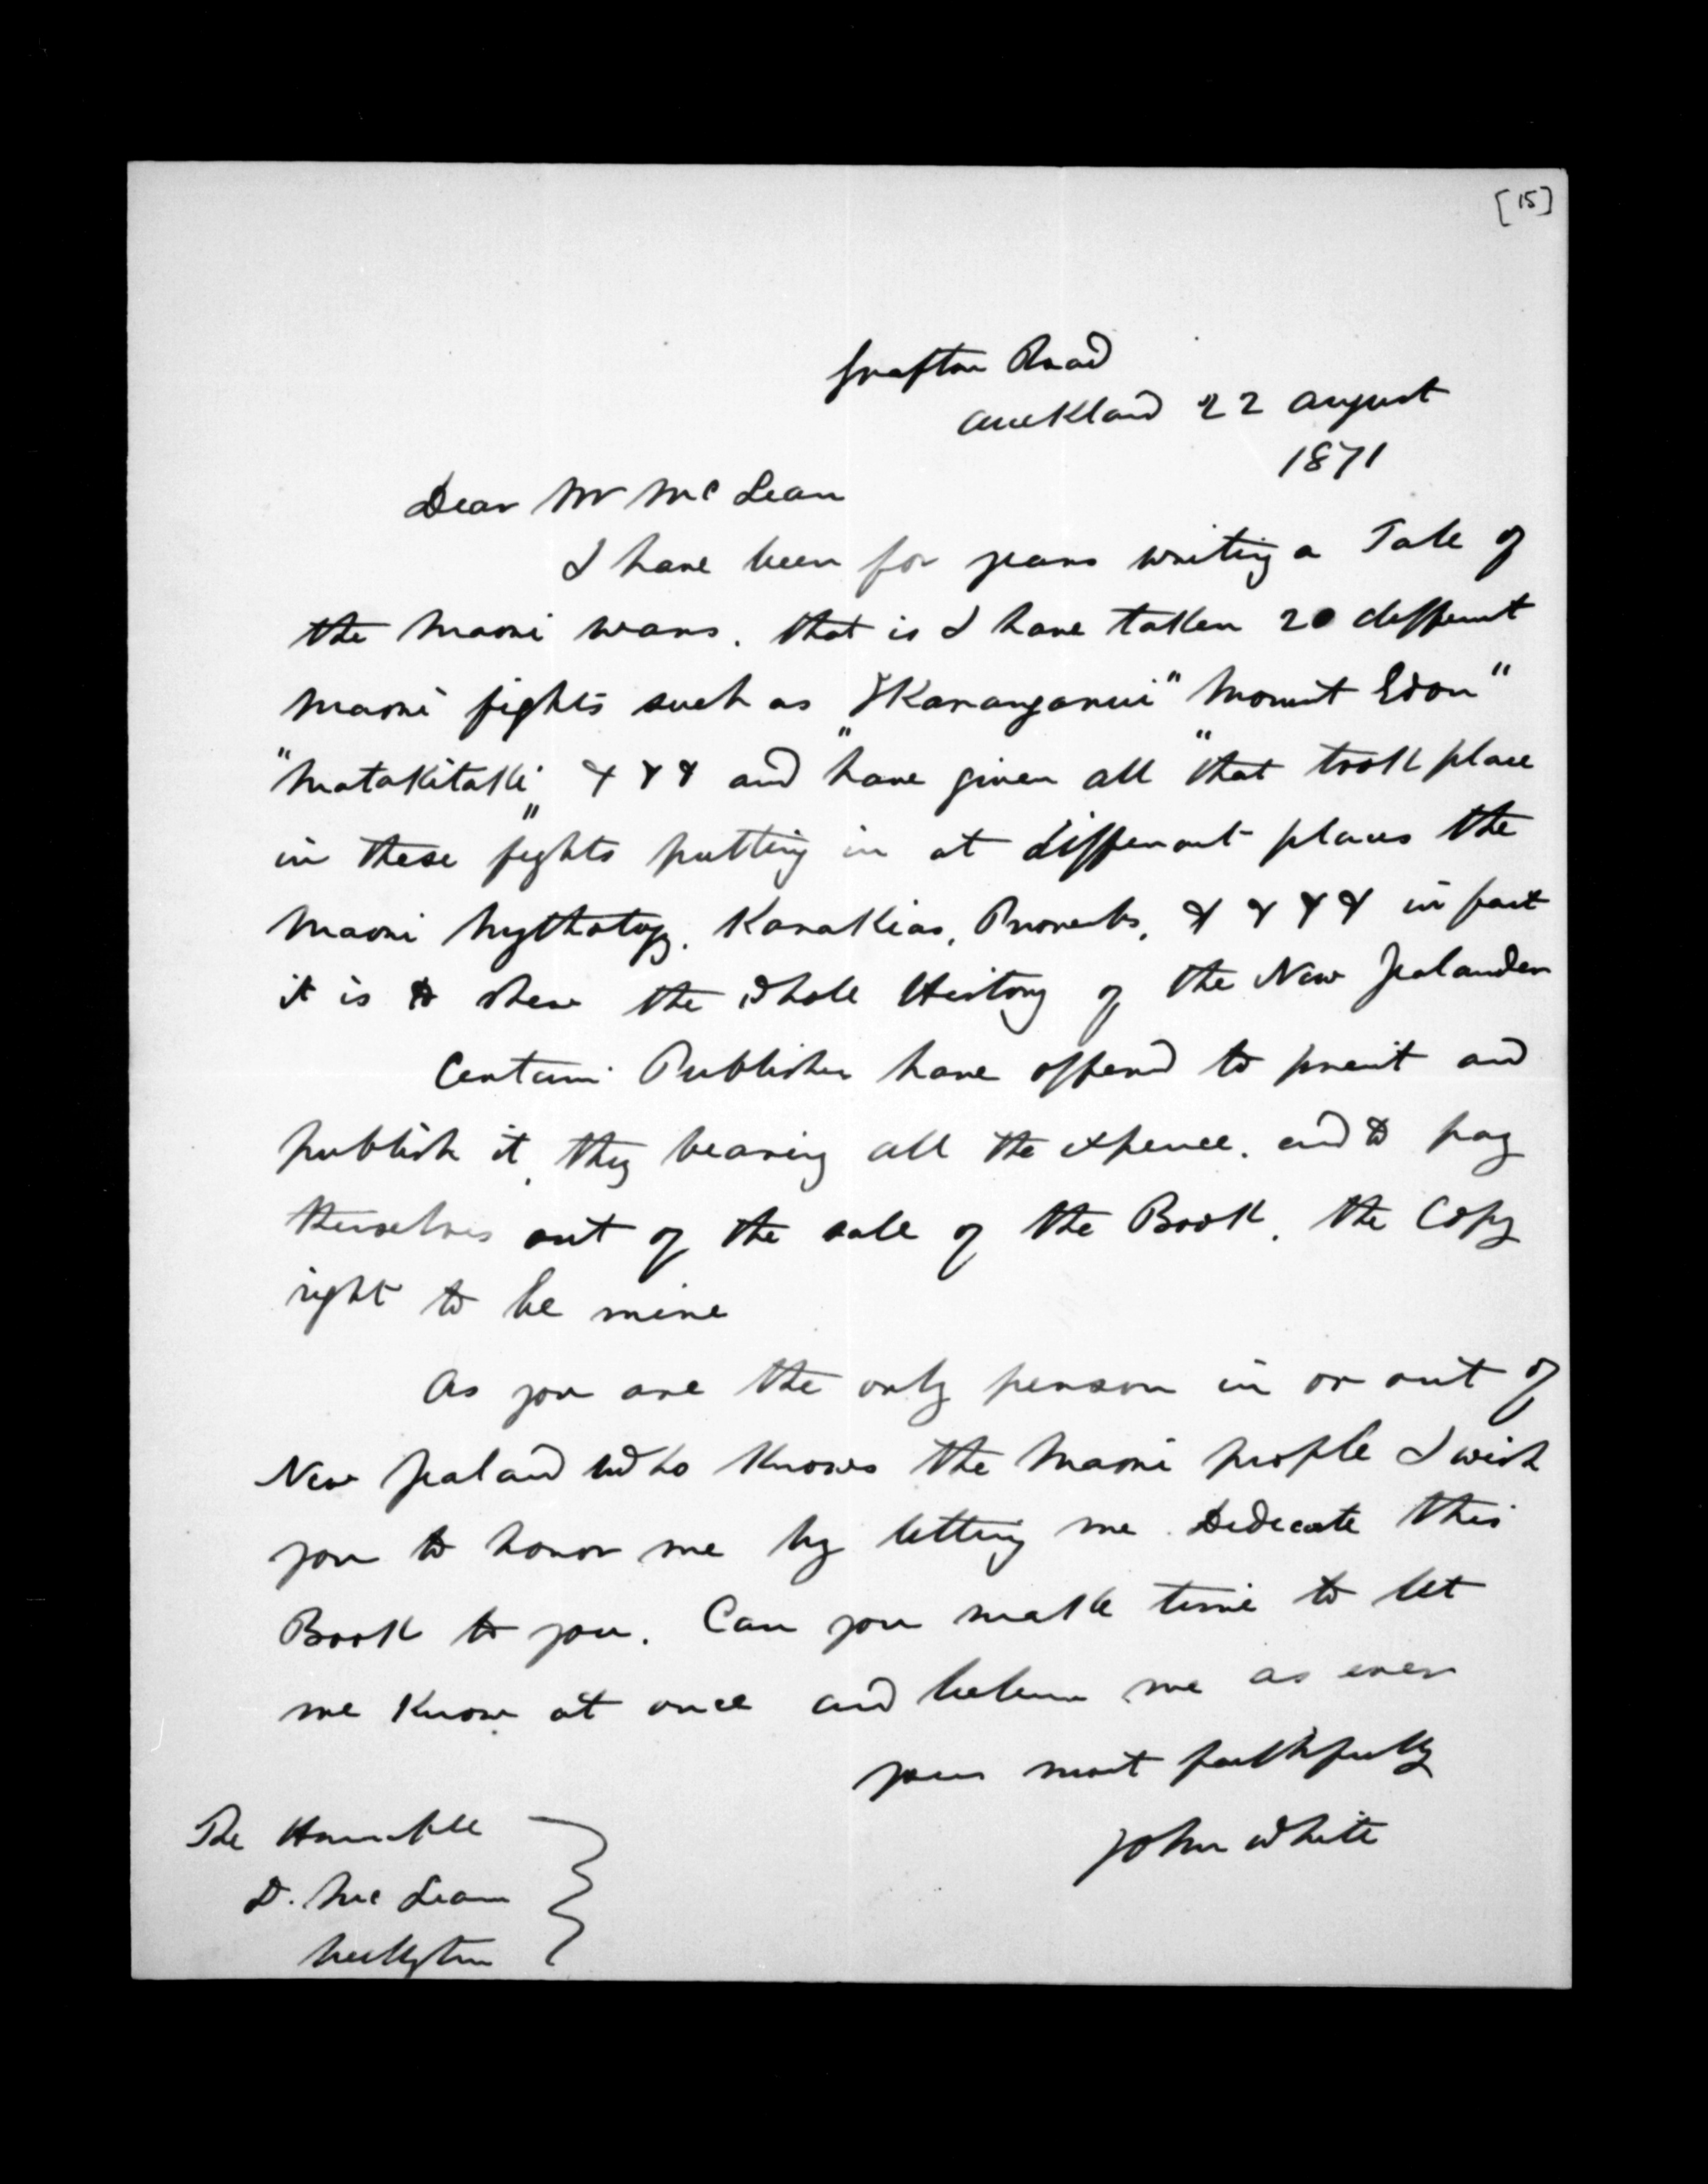 [15]
Grafton Road
Auckland 22 August
1871
Dear Mr McLean
I have been for years writing a Tale of
the Maori wars. that is I have taken 20 different
Maori fights such as "Karanganui" "Mount Edon"
"Matakitaki" & & & and have given all that took place
in these fights putting in at different places the
Maori Mythology. Karakias, Proverbs, & & & & in fact
it is to shew the whole History of the New Zealander
Certain Publisher have offered to print and
publish it, they bearing all the expence. and to pay
themselves out of the sale of the Book. the Copy
right to be mine
As you are the only person in or out of
New Zealand who knows the Maori people I wish
you to honor me by letting me Dedicate this
Book to you. Can you make time to let
me know at once and believe me as ever
yours most faithfully
John White
The Honorable
D. McLean
Wellington